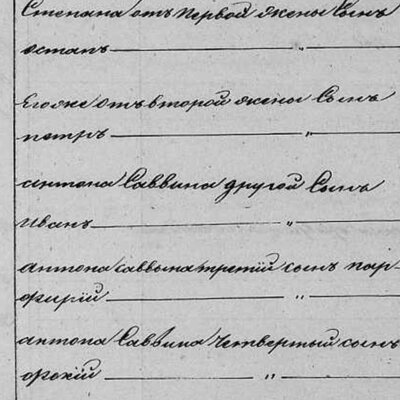 Степана отъ первой жены Сынъ
остапъ — „
Егоже отъ второй жены Сынъ
петръ — „ —
антона Саввина другой Сынъ
иванъ — „ —
антона саввына третій сынъ пар-
фирій — „ —
антона Саввина Четвертый сынъ
орокій — „ —